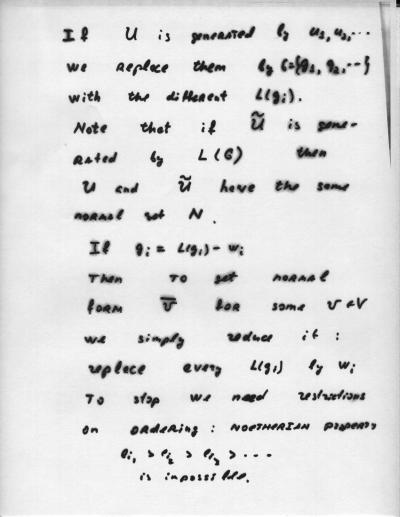 If U is generated by u₁, u₂, ...
we replace them by G={g₁, g₂, ...}
with the different L(gᵢ).
Note that if Ũ is gene-
rated by L(G) then
U and Ũ have the same
normal set N.
If gᵢ = L(gᵢ) - wᵢ
Then to get normal
form v̅ for some v ∈ V
we simply reduce it :
replace every L(gᵢ) by wᵢ
To stop we need restrictions
on ordering : NOETHERIAN property
eᵢ₁ > eᵢ₂ > eᵢ₃ > ...
is impossible.